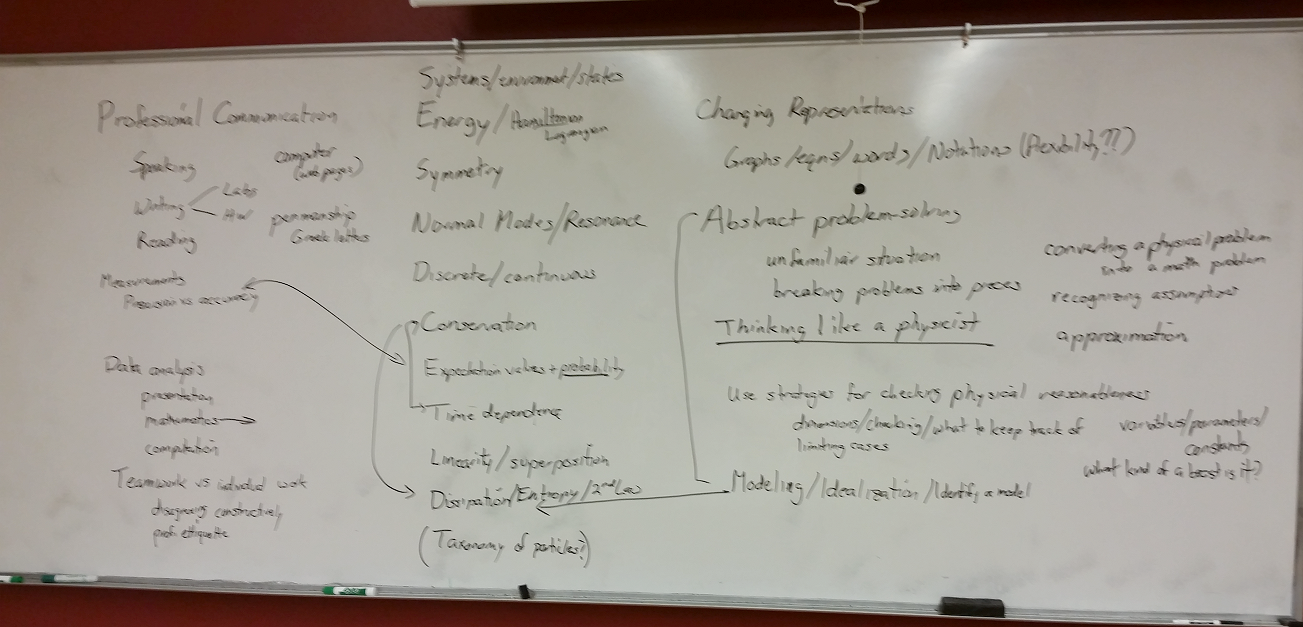 Professional Communication
Speaking
computer
(web pages)
Writing
Labs
HW
penmanship
Greek letters
Reading
Measurements
Precision vs accuracy
Data analysis
presentation
mathematics
computation
Teamwork vs individual work
disagreeing constructively
prof. ettiquette
Systems/environment/states
Energy/Hamiltonian
Lagrangian
Symmetry
Normal Modes/Resonance
Discrete/continuous
Conservation
Expectation values + probability
Time dependence
Linearity/superposition
Dissipation/Entropy/2nd Law
(Taxonomy of particles?)
Changing Representations
Graphs/eqns/words/Notations (flexibility??)
Abstract problem-solving
unfamiliar situation
breaking problems into pieces
converting a physical problem
into a math problem
recognizing assumptions
Thinking like a physicist
approximation
Use strategies for checking physical reasonableness
dimensions/checking/what to keep track of
limiting cases
variables/parameters/
constants
what kind of a beast is it?
Modeling/Idealization/Identify a model